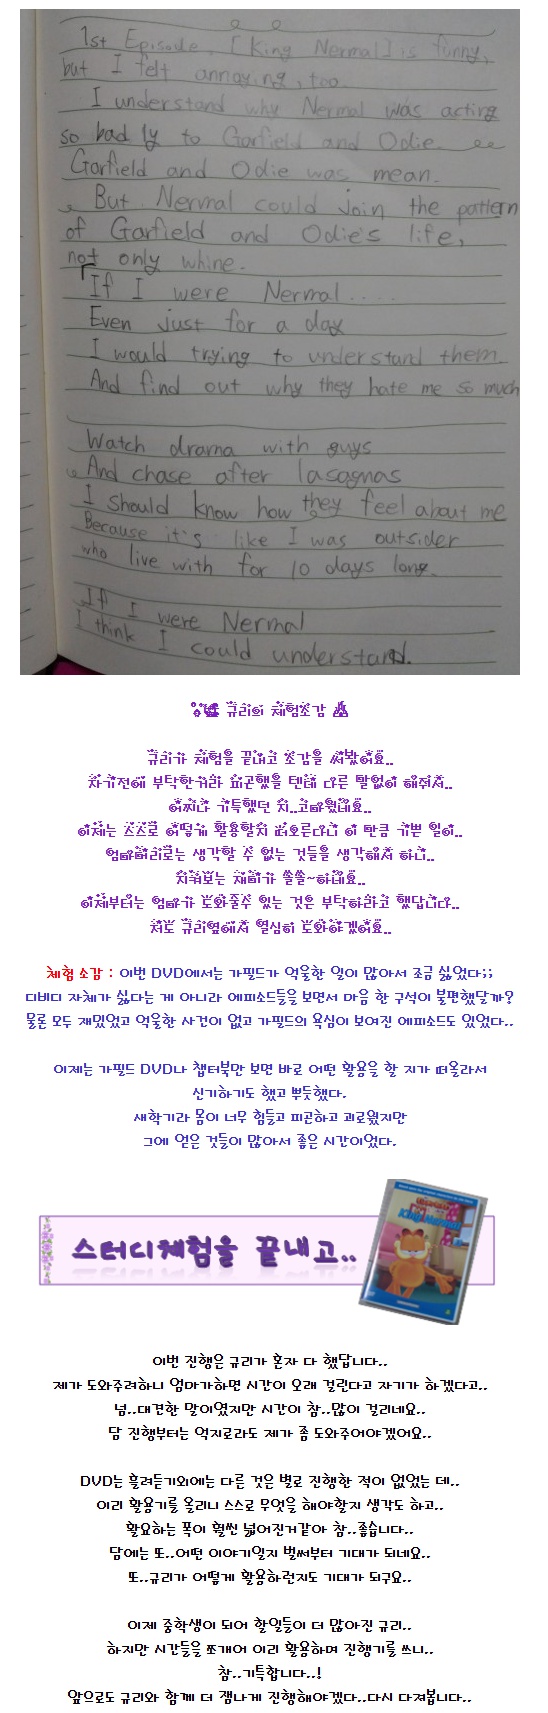 1st Episode, [King Nermal] is funny,
but I felt annoying, too.
I understand why Nermal was acting
so bad ly to Garfield and Odie.
Garfield and Odie was mean.
But Nermal could join the pattern
of Garfield and Odie's life,
not only whine.
If I were Nermal....
Even just for a day
I would trying to understand them
And find out why they hate me so much
Watch drama with guys
And chase after lasagnas
I should know how they feel about me
Because it's like I was outsider
who live with for 10 days long.
If I were Nermal
I think I could understand.
규리의 체험소감
규리가 체험을 끝내고 소감을 써봤어요..
자기전에 부탁한거라 피곤했을 텐데 다른 말없이 해줘서..
어찌나 기특했던 지..고마웠네요..
이제는 스스로 어떻게 활용할지 떠오른다니 이 만큼 기쁜 일이..
엄마머리로는 생각할 수 없는 것들을 생각해서 하니..
지켜보는 재미가 쏠쏠~하네요..
이제부터는 엄마가 도와줄수 있는 것은 부탁하라고 했답니다..
저도 규리옆에서 열심히 도와야겠어요..
체험 소감 : 이번 DVD에서는 가필드가 억울한 일이 많아서 조금 싫었다;;
디비디 자체가 싫다는 게 아니라 에피소드들을 보면서 마음 한 구석이 불편했달까?
물론 모두 재밌었고 억울한 사건이 없고 가필드의 욕심이 보여진 에피소드도 있었다..
이제는 가필드 DVD나 챕터북만 보면 바로 어떤 활용을 할 지가 떠올라서
신기하기도 했고 뿌듯했다.
새학기라 몸이 너무 힘들고 피곤하고 괴로웠지만
그에 얻은 것들이 많아서 좋은 시간이었다.
스터디체험을 끝내고..
King Nermal
이번 진행은 규리가 혼자 다 했답니다..
제가 도와주려하니 엄마가하면 시간이 오래 걸린다고 자기가 하겠다고..
넘..대견한 말이였지만 시간이 참..많이 걸리네요..
담 진행부터는 억지로라도 제가 좀 도와주어야겠어요..
DVD는 흘려듣기외에는 다른 것은 별로 진행한 적이 없었는 데..
이리 활용기를 올리니 스스로 무엇을 해야할지 생각도 하고..
활요하는 폭이 훨씬 넓어진거같아 참..좋습니다..
담에는 또..어떤 이야기일지 벌써부터 기대가 되네요..
또..규리가 어떻게 활용하련지도 기대가 되구요..
이제 중학생이 되어 할일들이 더 많아진 규리..
하지만 시간들을 쪼개어 이리 활용하며 진행기를 쓰니..
참..기특합니다..!
앞으로도 규리와 함께 더 잼나게 진행해야겠다..다시 다져봅니다..